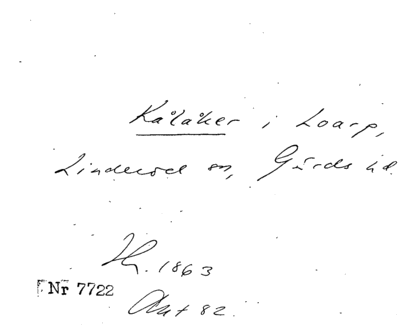 Kålåker i Loarp,
Linderöd sn, Gärds hd.
Hy. 1863
Nr 7722
Akt 82.